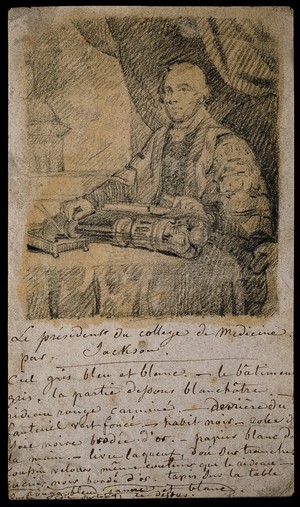 Le président du college de Medicine
par Jackson.
Ciel gris bleu et blanc. — le bâtiment
gris, la partie dessous blanchâtre
rideau rouge carminé — derrière du
fauteuil vert foncé — habit noir —
soie noire brodée d'or. — papier blanc
la main. — livre laqué doré sur tranches
coussin velours même couleur que le rideau —
noir bordé d'or. tapis sur la table
rouge bleu jaune et blanc.
dessus.